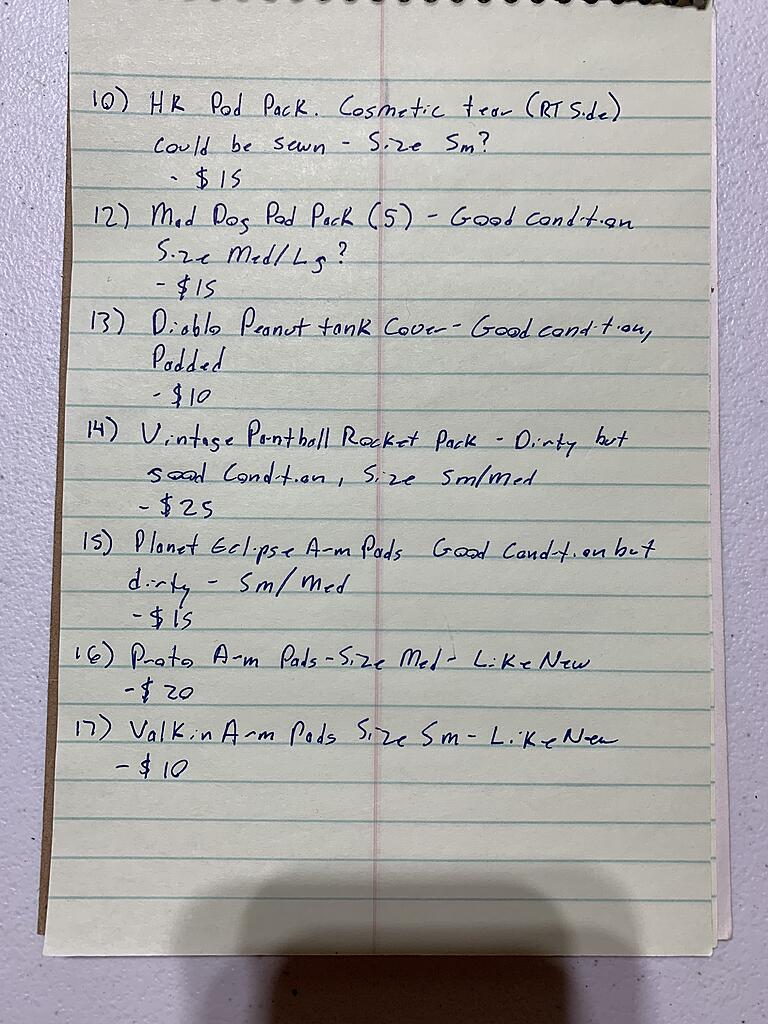 10) HK Pod Pack. Cosmetic tear (RT Side)
could be sewn - Size Sm?
- $15
12) Mad Dog Pod Pack (5) - Good condition
Size Med/Lg?
- $15
13) Diablo Peanut tank Cover - Good condition,
Padded
- $10
14) Vintage Paintball Rocket Pack - Dirty but
good Condition, Size Sm/Med
- $25
15) Planet Eclipse Arm Pads Good Condition but
dirty - Sm/Med
- $15
16) Proto Arm Pads - Size Med - Like New
- $20
17) Valkin Arm Pads Size Sm - Like New
- $10